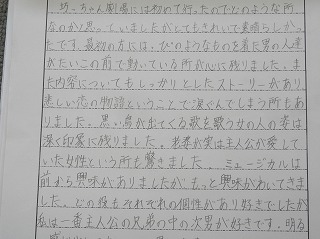 坊っちゃん劇場には初めて行ったのでどのような所
なのか?思っていましたがとてもきれいで素晴らしかっ
たです。最初の方には、びのようなものを着た男の人達
がたいこの前で対いている所が心に残りました。ま
た内容についてもしっかりとしたストーリーがあり
悲しい恋の物語ということで涙ぐんでしまう所もあ
りました。黒い鳥が出てくる歌を歌う女の人の姿は
深く印象に残りました。老婆が実は主人公が愛して
いた女性という所も驚きました。ミュージカルは
前から興味がありましたがもっと興味がわいてきま
した。どの役もそれぞれの個性があり好きでしたが
私は一番主人公の兄弟の中の次男が好きです。明る